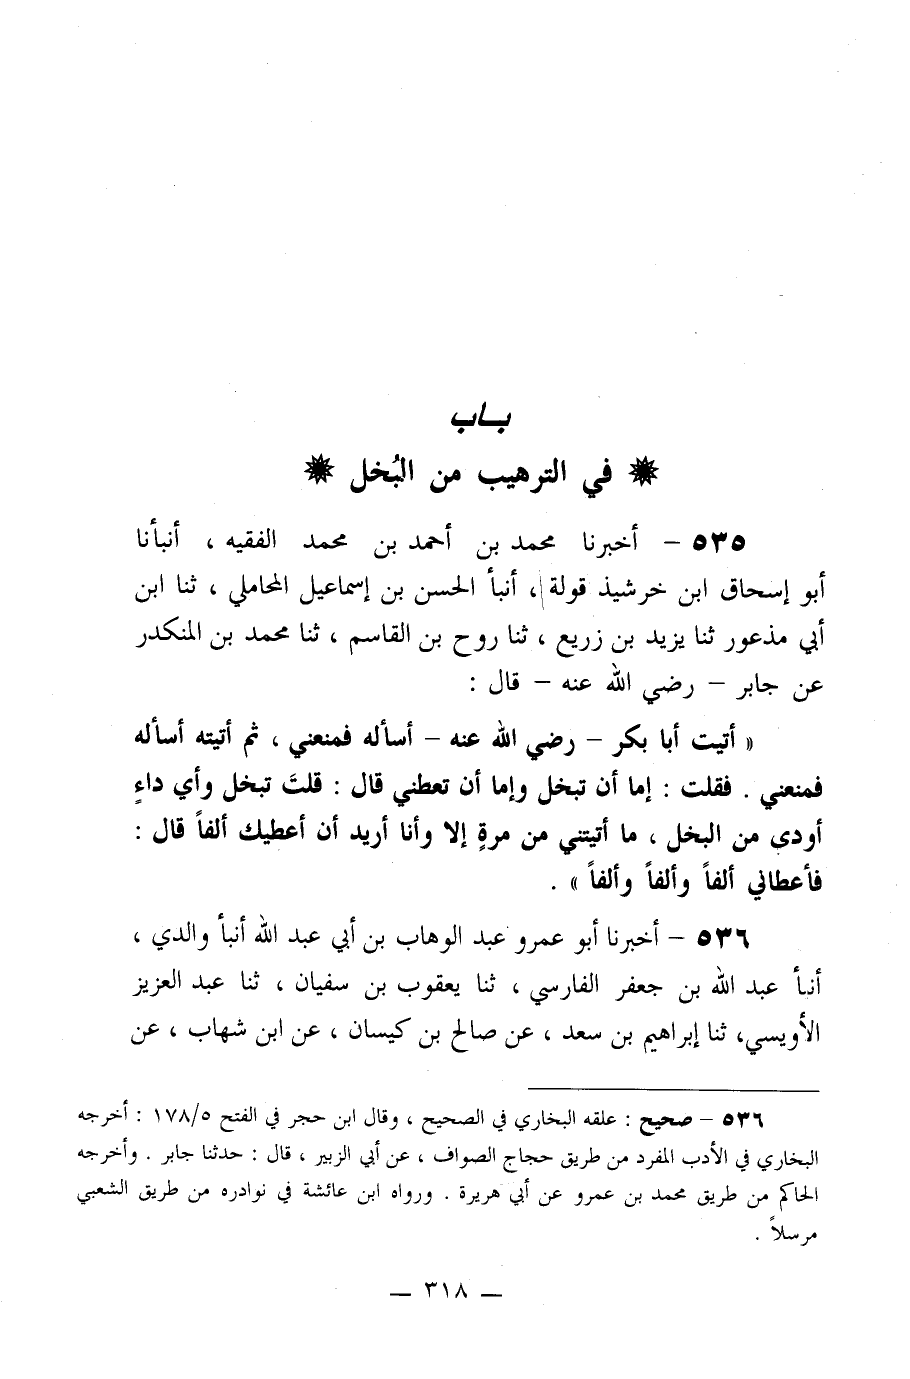 بـاب
في الترهيب من البُخل
٥٣٥ – أخبرنا محمد بن أحمد بن محمد الفقيه ، أنبأنا
أبو إسحاق ابن خرشيذ قولة ، أنبأ الحسن بن إسماعيل المحاملي ، ثنا ابن
أبي مذعور ثنا يزيد بن زريع ، ثنا روح بن القاسم ، ثنا محمد بن المنكدر
عن جابر – رضي الله عنه – قال :
« أتيت أبا بكر – رضي الله عنه – أسأله فمنعني ، ثم أتيته أسأله
فمنعني . فقلت : إما أن تبخل وإما أن تعطني قال : قلتَ تبخل وأي داءٍ
أودى من البخل ، ما أتيتني من مرةٍ إلا وأنا أريد أن أعطيك ألفاً قال :
فأعطاني ألفاً وألفاً وألفاً » .
٥٣٦ – أخبرنا أبو عمرو عبد الوهاب بن أبي عبد الله أنبأ والدي ،
أنبأ عبد الله بن جعفر الفارسي ، ثنا يعقوب بن سفيان ، ثنا عبد العزيز
الأويسي، ثنا إبراهيم بن سعد ، عن صالح بن كيسان ، عن ابن شهاب ، عن
٥٣٦ – صحيح : علقه البخاري في الصحيح ، وقال ابن حجر في الفتح ١٧٨/٥ : أخرجه
البخاري في الأدب المفرد من طريق حجاج الصواف ، عن أبي الزبير ، قال : حدثنا جابر . وأخرجه
الحاكم من طريق محمد بن عمرو عن أبي هريرة . ورواه ابن عائشة في نوادره من طريق الشعبي
مرسلاً .
— ٣١٨ —